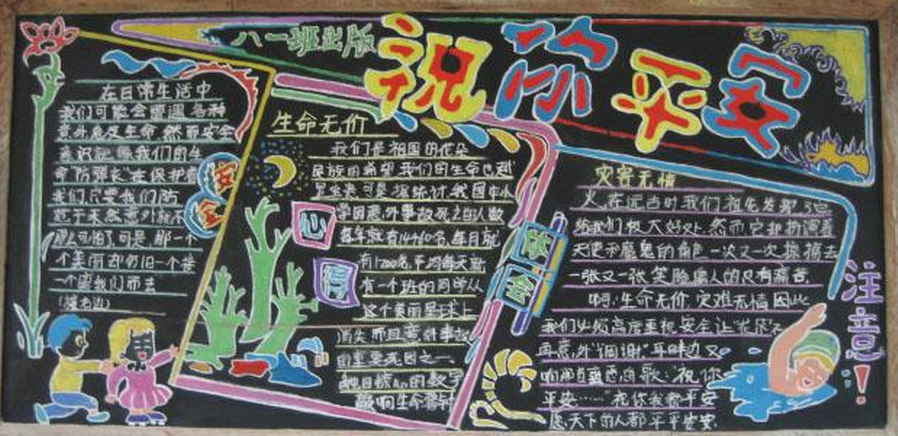 八一班出版
祝你平安
在日常生活中
我们可能会遭遇各种
意外危及生命,然而安全
意识就像我们的生
命"防弹衣"在保护着
我们只要我们防
范于未然意外就不
那么可怕了可是那一个
个美丽却仍旧一个接
一个离我们而去
安全
生命无价
我们是祖国的花朵
民族的希望,我们的生命也越
学因意外事故死之的人数
每年就有14460名,每月就
有1200名,平均每天就
有一个班的同学从
这个美丽星球上
消失而且意外事故
的主要死因之一
触目惊心的数字
敲响生命警钟
心得
体会
灾害无情
火,在远古时我们祖先发现了它
给我们极大好处,然而它却扮演着
天使和魔鬼的角色一次又一次掠摘去
一张又一张笑脸
啊,生命无价,灾难无情因此
我们必须高度重视安全让花朵不
再意外"凋谢"耳畔边又
响起首熟悉的歌:"祝你
平安……"祝你我都平安
愿天下的人都平平安安
注意!